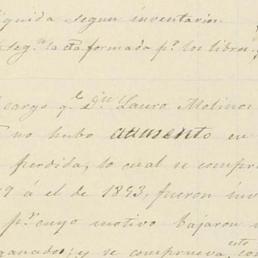 liquida segun inventario
seg.ⁿ la cta formada p.ʳ los libros
cargo q.ᵉ d.ⁿ Lauro Molina
no hubo aumento en
perdida, lo cual se compr
9 á el de 1893, fueron inv
p.ʳ cuyo motivo bajaron
ganados; y se comprueva, con
esto